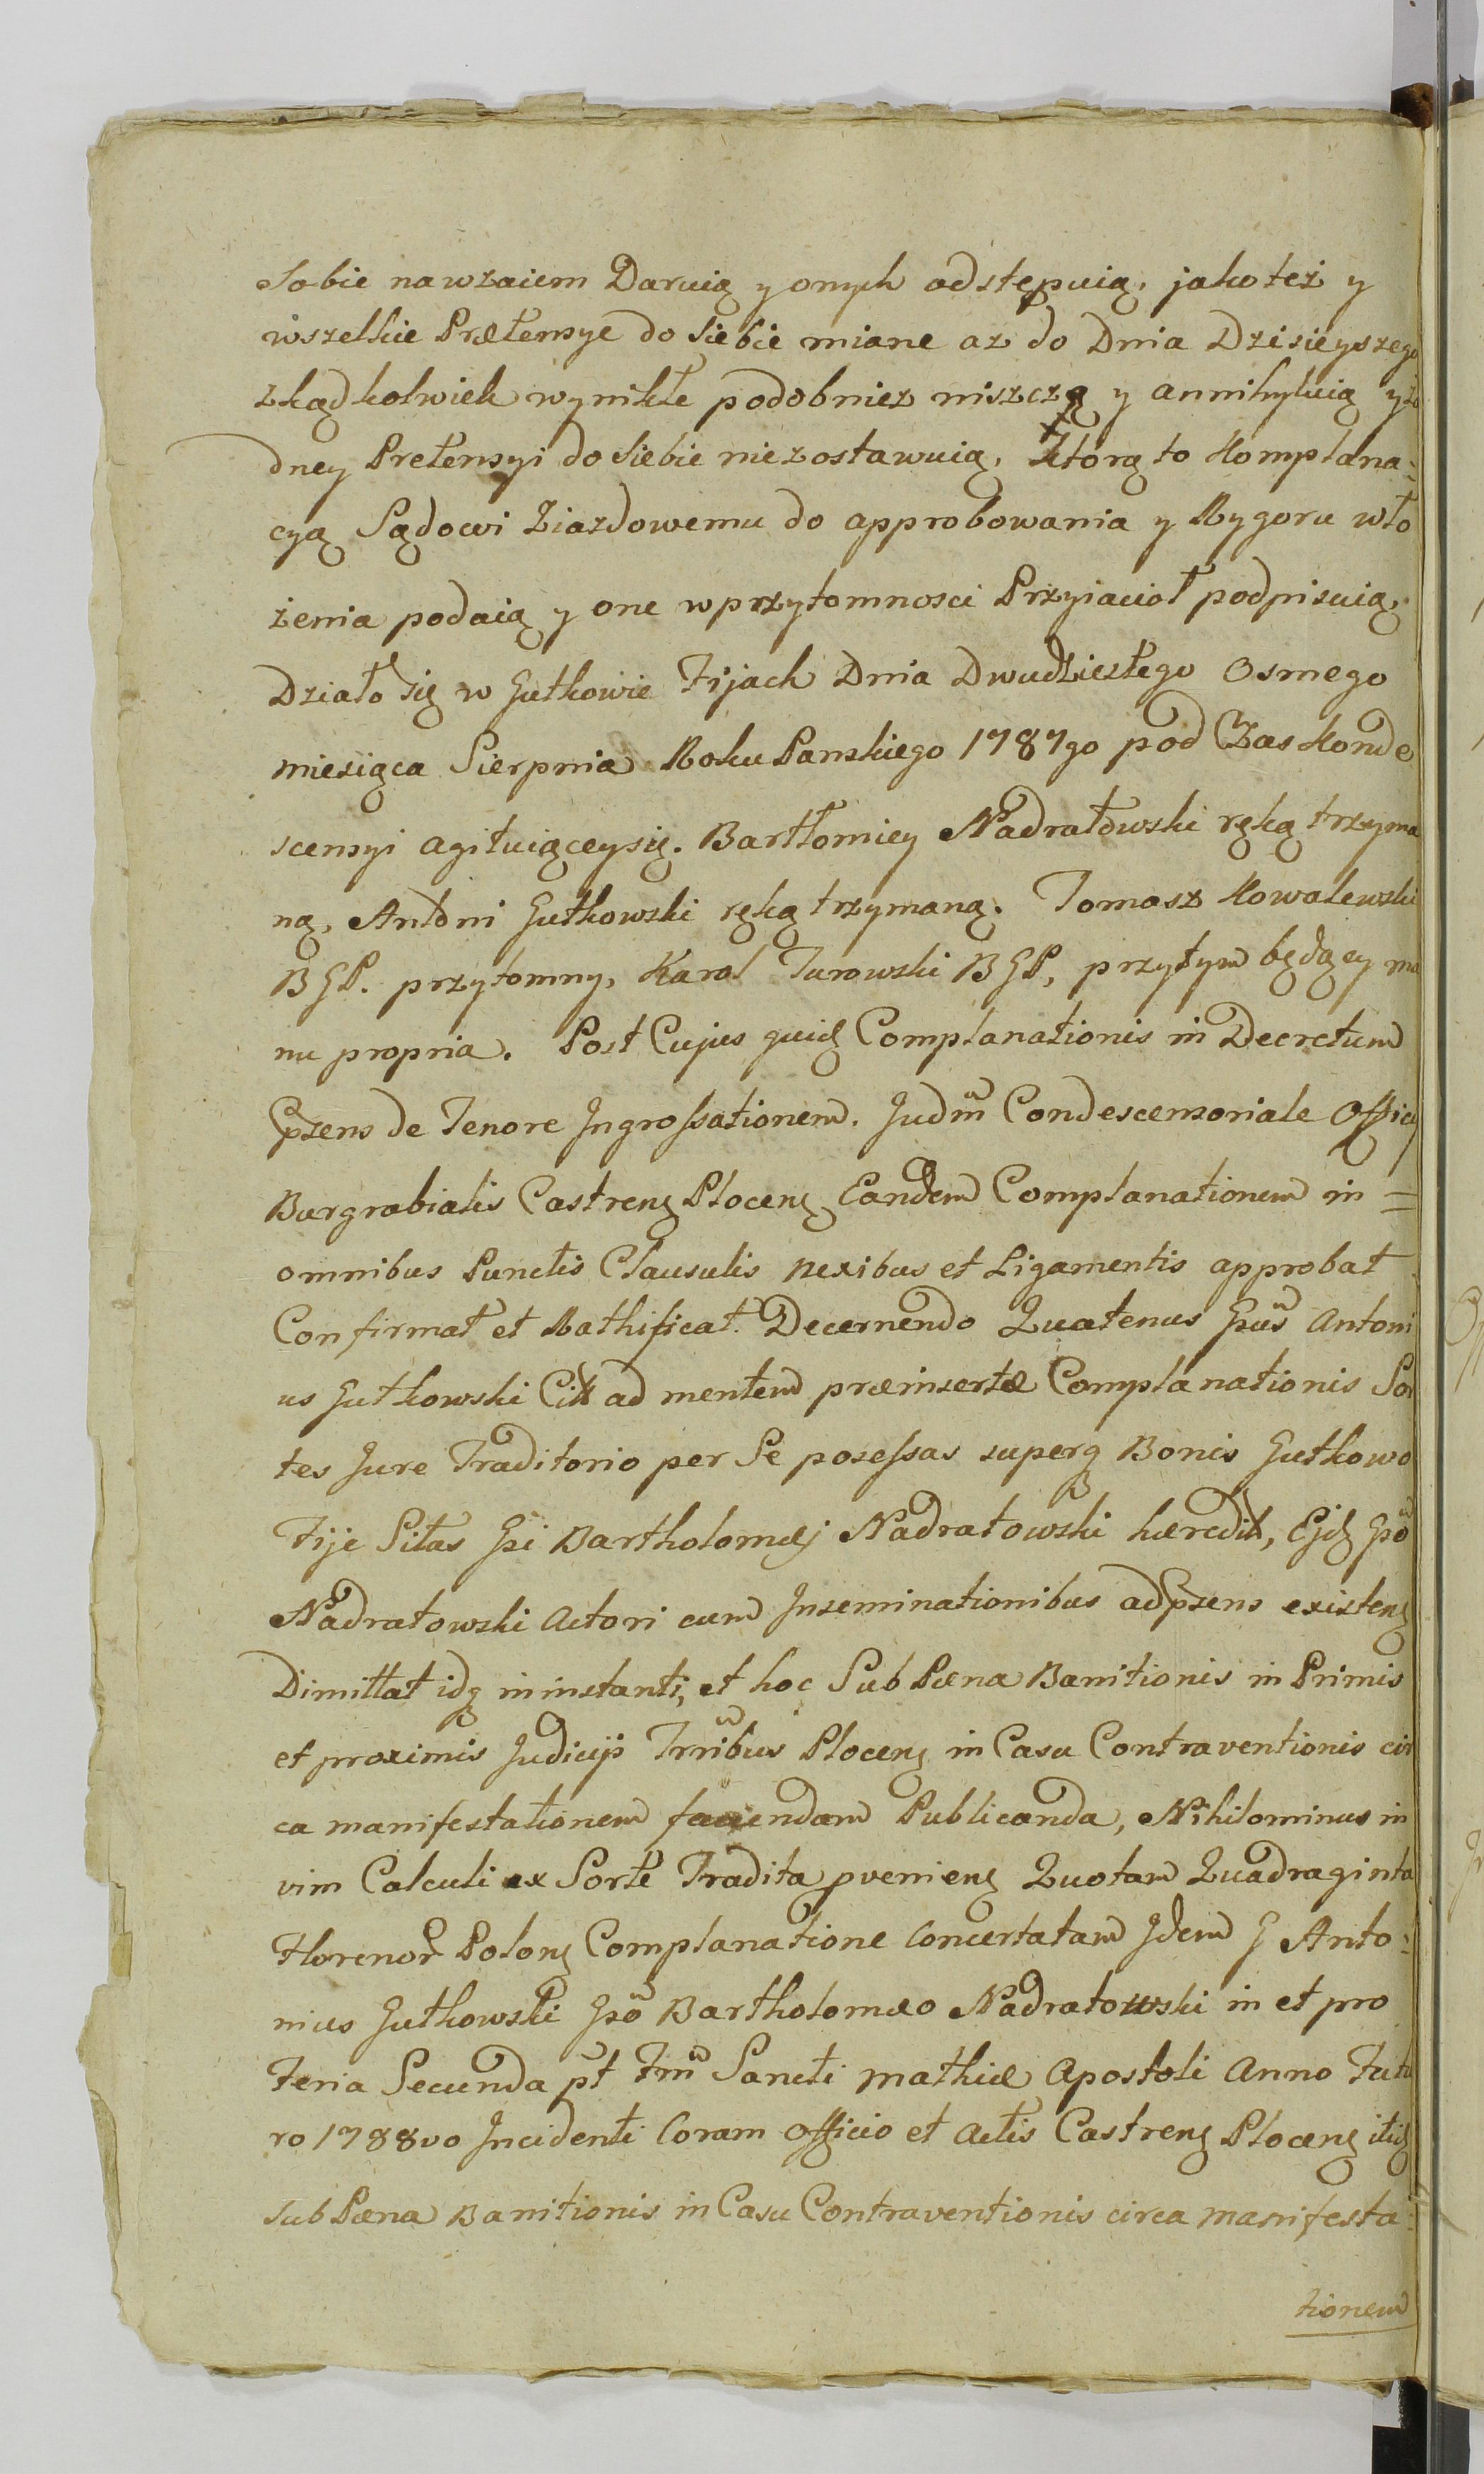 Sobie nawzaiem Daruią y onych odstępuią, jako też y
wszelkie Prætensye do Siebie miane az do Dnia Dzisieyszego
zkądkolwiek wynikłe podobniez niszczą y annihyluią y ża
dney Pretensyi do Siebie niezostawuią, Którą to Komplana:
cyą Sądowi Ziazdowemu do approbowania y Rygoru wło
żenia podaią y one w przytomnosci Przyiacioł podpisuią,
Działo się w Gutkowie Fijach Dnia Dwudziestego Osmego
miesiąca Sierpnia Roku Panskiego 1787go pod Czas Konde
scensyi agituiąceysię. Bartłomiey Nadratowski ręką trzyma
ną, Antoni Gutkowski ręką trzymaną. Tomasz Kowalewski
BGP. przytomny, Karol Turowski BGP, przytym będący ma
nu propria. Post Cujus quid Complanationis in Decretum
Ppsens de Tenore Ingrossationem. Judm Condescensoriale Officij
Burgrabialis Castrens Plocens Eandem Complanationem in =
omnibus Punctis Clausulis nexibus et Ligamentis approbat
Confirmat et Rathificat. Decernendo Quatenus Gsus Antoni
us Gutkowski Citt ad mentem præinsertæ Complanationis Sor
tes Jure Traditorio per Se possessas superq Bonis Gutkowo
Fije Sitas Gsi Bartholomæj Nadratowski hæredit, Ejd Gso
Nadratowski Actori cum Inseminationibus ad Ppsens existens
Dimittat idq in instanti, et hoc Sub Pæna Banitionis in Primis
et proximis Judicijs Trribus Plocens in Casu Contraventionis cir
ca manifestationem faciendam Publicanda, Nihilominus in
vim Calculi ex Sorte Tradita pveniens Quotam Quadraginta
Florenor Polons Complanatione Concertatam Idem G Anto:
nius Gutkowski Gso Bartholomæo Nadratowski in et pro
Feria Secunda pt Fm Sancti Mathiæ Apostoli Anno Futu
ro 1788vo Incidenti Coram Officio et Actis Castrens Plocens itid
sub Pæna Banitionis in Casu Contraventionis circa manifesta:
tionem